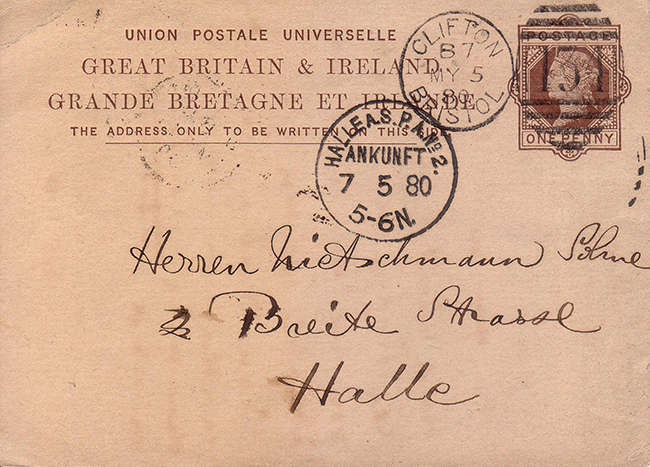 UNION POSTALE UNIVERSELLE
GREAT BRITAIN & IRELAND
GRANDE BRETAGNE ET IRLANDE
THE ADDRESS ONLY TO BE WRITTEN ON THIS SIDE
CLIFTON
B7
MY 5
80
BRISTOL
POSTAGE
134
ONE PENNY
HALLE A.S. P.A. No 2.
ANKUNFT
7 5 80
5-6N.
Herren Nietschmann Sohne
2 Breite Strasse
Halle